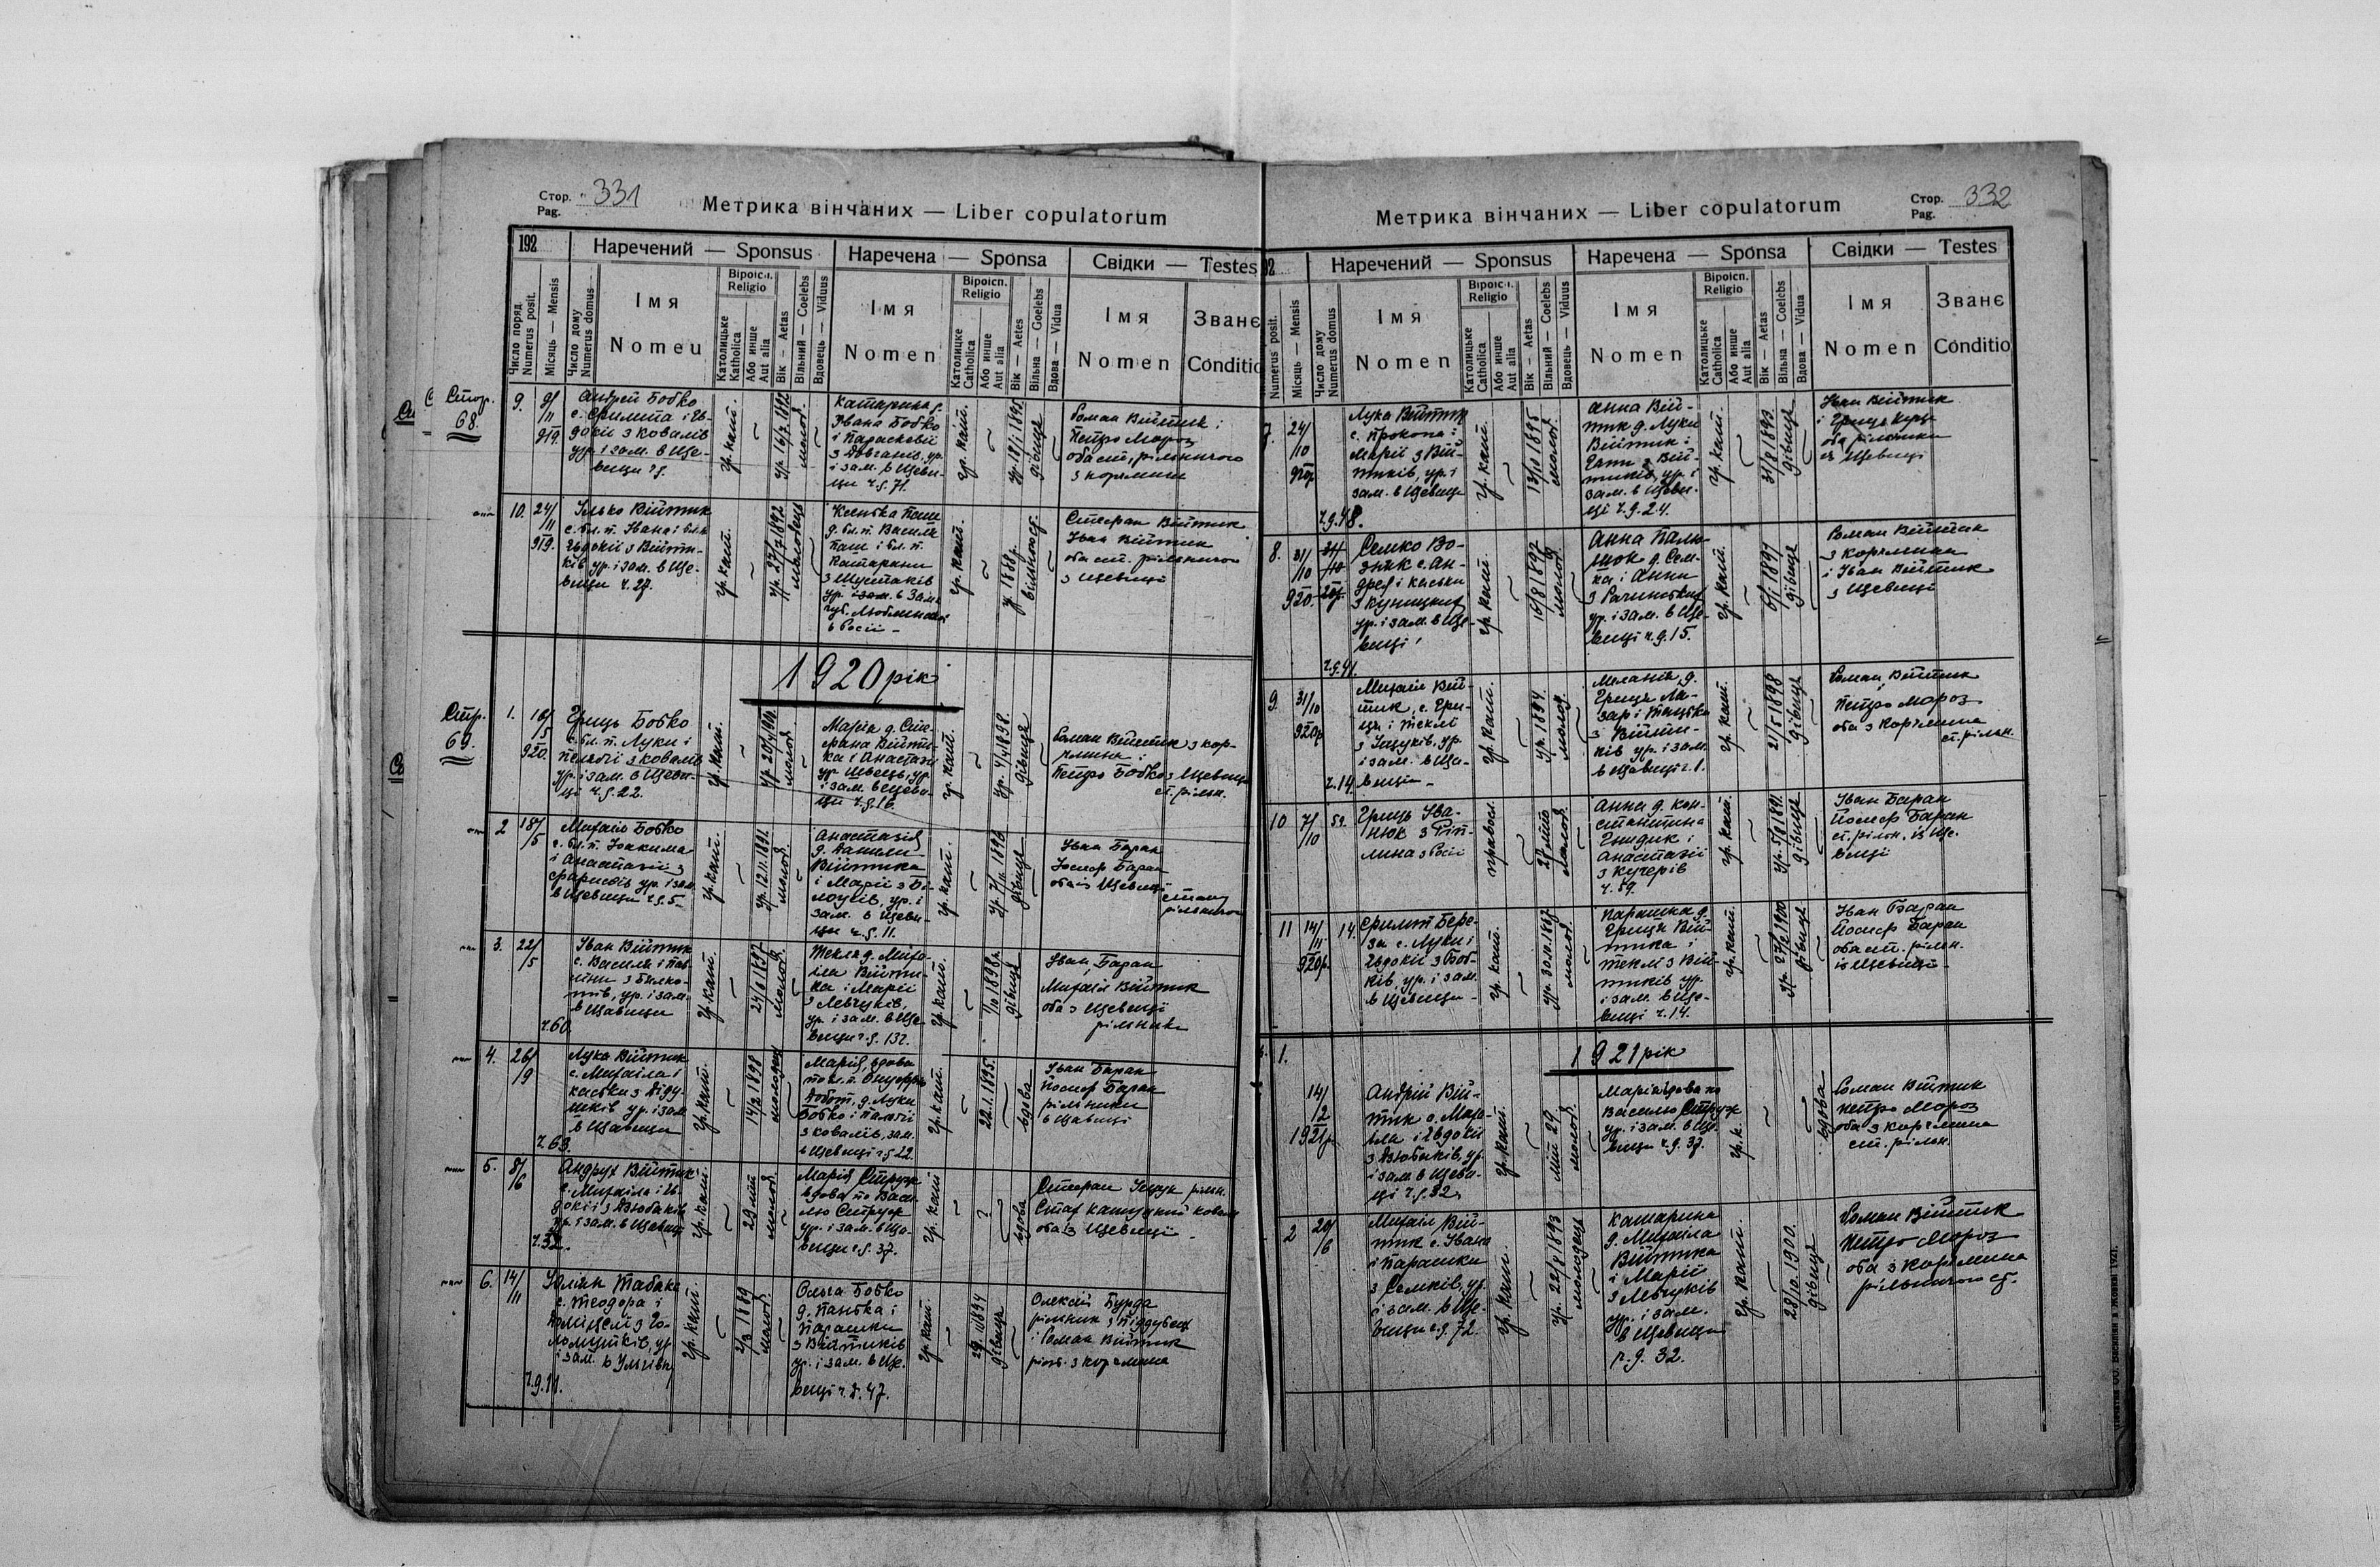 Стор. 331
Pag.
Метрика вінчаних — Liber copulatorum
192
Наречений — Sponsus
Наречена — Sponsa
Свідки — Testes
Число поряд.
Numerus posit.
Місяць — Mensis
Число дому
Numerus domus
Імя
Nomeu
Віроісп.
Religio
Католицьке
Katholica
Або инше
Aut alia
Вік — Aetas
Вільний — Coelebs
Вдовець — Viduus
Імя
Nomen
Віроісп.
Religio
Католицке
Catholica
Або инше
Aut alia
Вік — Aetes
Вільна — Goelebs
Вдова — Vidua
Імя
Nomen
Званє
Conditio
Стор.
68.
9.
9/
11
919.
Андрей Бобко
с. Филипа і Єв-
докії з Ковалів
ур. і зам. в Ще-
вици ч. 9.
гр. кат.
ур. 16/7 1892
молод.
Катарина д.
Ивана Бобко
і Параскевії
з Довганів, ур.
і зам. в Щеви-
ци ч. д. 71.
гр. кат.
дівиця
Роман Війтик і
Петро Мороз
оба ст. рільничого
з Корчмина
10.
24/
11
919.
Ілько Війтик
с. бл. п. Івана і бл. п.
Євдокії з Війти-
ків ур. і зам. в Ще-
вици ч. 27.
гр. кат.
ур. 27/7 1892
молодець
Ксенька Паш
д. бл. п. Василя
Паш і бл. п.
Катарини
з Шустаків
ур. і зам. в
губ. Люблинскій
в Росії —
гр. кат.
у. 1888 р.
Стефан Війтик
Іван Війтик
оба ст. рільничого
з Щевиці
1920 рік
Стр.
69.
1.
16/
5
920.
Гриць Бобко
с. бл. п. Луки і
Пелагії з Ковалів
ур. і зам. в Щеви-
ци ч. д. 22.
гр. кат.
молод.
Марія д. Сте-
фана Війти-
ка і Анастазії
ур. Швець, ур.
і зам. в Щеви-
ци ч. д. 16.
гр. кат.
ур. 4/4 1898.
дівиця
Роман Війтик з Кор-
чмина і
Петро Бобко з Щевиці
ст. рільн.
2
18/
5
Михаіл Бобко
с. бл. п. Іоакима
і Анастазії з
Фарисів ур. і зам.
в Щевици ч. д. 5
гр. кат.
ур. 12.11.1891.
молод.
Анастазія
д. Данила
Війтика
і Марії з Бі-
лоусів, ур. і
зам. в Щеви-
ци ч. д. 11.
гр. кат.
дівиця
Іван Баран
Іосиф Баран
оба із Щевиці
стану
рільничого
3.
22/
5
Іван Війтик
с. Василя і Пав-
ліни з Билко-
тів, ур. і зам.
в Щевици
ч. 60.
гр. кат.
24/6 1897
молод.
Текля д. Миха-
іла Війти-
ка і Марії
з Левчуків,
ур. і зам. в Ще-
вици ч. д. 132.
гр. кат.
1/10 1898 р.
дівиця
Іван Баран
Михаіл Війтик
оба з Щевиці
рільники
4.
26/
9
Лука Війтик
с. Михаіла і
Каськи з Діду-
ників ур. і зам.
в Щевици
ч. 63.
гр. кат.
14/2 1898
молодець
Марія, вдова
по бл. п. Онуфрію
Добот, д. Луки
Бобко і Палагії
з Ковалів, зам.
в Щевиці ч. д. 22
гр. кат.
22.1.1895.
вдова
Іван Баран
Йосиф Баран
рільники
в Щевиці
5.
8/
6
Андрух Війтик
с. Михаіла і Єв-
докії з Дзюбаків
ур. і зам. в Щевиці
ч. 32.
гр. кат.
29 літ
молод.
Марія Струж
вдова по Васи-
лю Струж
ур. і зам. в Ще-
вици ч. д. 37.
гр. кат
?
вдова
Стефан Іщук рільн.
Стах Капуцкий коваль
оба із Щевиці
6.
14/
11
Юліян Табака,
с. Теодора і
Домініцелі з Го-
ломушків, ур.
і зам. в Угнів
ч. д. 11.
гр. кат.
2/3 1889
молод.
Ольга Бобко
д. Панька і
Парашки
з Війтиків
ур. і зам. в Ще-
вици ч. д. 47.
гр. кат.
29/10 1894
дівиця
Олексій Бурда
рільник з Піддубец
і Роман Війтик
рільн. з Корчмина
Стор. 332
Pag.
Метрика вінчаних — Liber copulatorum
Наречений — Sponsus
Наречена — Sponsa
Свідки — Testes
Numerus posit.
Місяць — Mensis
Число дому
Numerus domus
Імя
Nomen
Віроісп.
Religio
Католицьке
Catholica
Або инше
Aut alia
Вік — Aetas
Вільний — Coelebs
Вдовець — Viduus
Імя
Nomen
Віроісп.
Religio
Католицьке
Catholica
Або инше
Aut alia
Вік — Aetas
Вільна — Coelebs
Вдова — Vidua
Імя
Nomen
Званє
Conditio
7.
24/
10
920 р.
Лука Війтик
с. Прокопа і
Марії з Вій-
тиків, ур. і
зам. в Щевици
ч. д. 48.
гр. кат.
13/10 1895
молод.
Анна Вій-
тик д. Луки
Війтик і
Гапи з Вій-
тиків, ур. і
зам. в Щеви-
ці ч. д. 24.
гр. кат.
31/8 1893
дівиця
Іван Війтик
і Гриць Куца
оба рільники
із Щевиці
8.
31/
10
920.
Семко Во-
зник с. Ан-
дрея і Каськи
з Куницких
ур. і зам. в Ще-
вици
ч. д. 41.
гр. кат.
16/8 1897
молод.
Анна Палю-
шок д. Сем-
ка і Анни
з Рачинських
ур. і зам. в Ще-
вици ч. д. 15.
гр. кат.
6/1 1897
дівиця
Роман Війтик
з Корчмина
і Іван Війтик
з Щевиці
9.
31/
10
920 р.
Михаіл Вій-
тик, с. Гри-
ця і Теклі
з Іщуків, ур.
і зам. в Ще-
вици
ч. 14.
гр. кат.
ур. 1894.
молод.
Меланія, д.
Гриця Ла-
зар і Теклі
з Війти-
ків ур. і зам.
в Щевиці ч. 1.
гр. кат.
21/5 1898
дівиця
Роман Війтик
Петро Мороз
оба з Корчмина
ст. рільн.
10
7/
10
59.
Гриць Іва-
нюк з Ріп-
лина з Росії
правосл.
27 літ
молод.
Анна д. Кон-
стантина
Гнидик і
Анастазії
з Кучерів
ч. 59.
гр. кат.
ур. 5/8 1891.
дівиця
Іван Баран
Йосиф Баран
ст. рільн. із Ще-
виці
11
14/
11
920 р.
14.
Филип Бере-
за с. Луки і
Євдокії з Боб-
ків, ур. і зам.
в Щевици
гр. кат.
молод.
Парашка д.
Гриця Вій-
тика і
Теклі з Вій-
тиків ур.
і зам. в Ще-
виці ч. 14.
гр. кат.
дівиця
Іван Баран
Йосиф Баран
оба ст. рільн.
із Щевиці
1921 рік
1.
14/
2
1921 р.
Андрій Вій-
тик с. Миха-
іла і Євдокії
з Дзюбаків, ур.
і зам. в Щеви-
ці ч. д. 32
гр. кат.
літ 29
молод.
Марія вдова по
Василю Струж
ур. і зам. в Ще-
вици ч. д. 37.
гр. к.
вдова
Роман Війтик
Петро Мороз
оба з Корчмина
ст. рільн.
2
20/
6
Михаіл Вій-
тик с. Івана
і Парашки
з Семків, ур.
і зам. в Ще-
вици ч. д. 72.
гр. кат.
ур. 22/8 1893
молодець
Катарина
д. Михаіла
Війтика
і Марії
з Левчуків
ур. і зам.
в Щевици
ч. д. 32.
гр. кат.
28/10.1900.
дівиця
Роман Війтик
Петро Мороз
оба з Корчмина
рільничого ст.